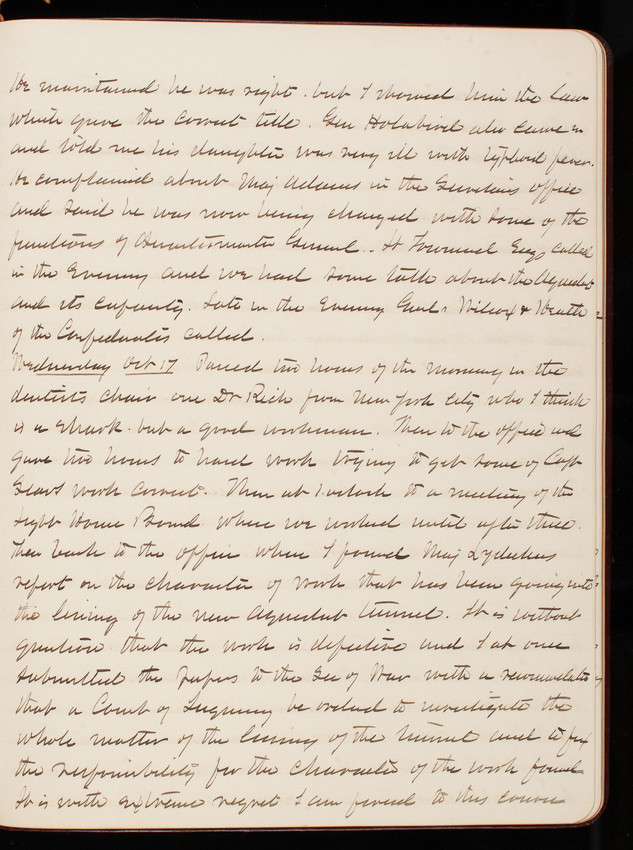 He maintained he was right. but I showed him the law
which gave the correct title. Gen Holabird also came in
and told me his daughter was very ill with typhoid fever.
He complained about Maj Adams in the Secretarys office
and said he was now being charged with some of the
functions of Quartermaster General. - H Townsend Esq called
in the Evening and we had some talk about the Aqueduct
and its capacity. Late in the Evening Genls Wilcox & Heath
of the Confederates called.
Wednesday Oct 17 Passed two hours of the morning in the
dentists chair one Dr Rich from New York City who I think
is a shark. but a good workman. Then to the office and
gave two hours to hard work trying to get some of Capt
work correct. Then at 1.oclock to a meeting of the
Light House Board where we worked until after three.
Then back to the office where I found Maj Lydeckers
report on the character of work that has been going into
the lining of the new aqueduct tunnel. It is without
question that the work is defective and I at once
submitted the papers to the Sec of War with a recommendation
that a Court of Inquiry be ordered to investigate the
whole matter of the lining of the tunnel and to fix
the responsibility for the character of the work found
It is with extreme regret I am forced to this course